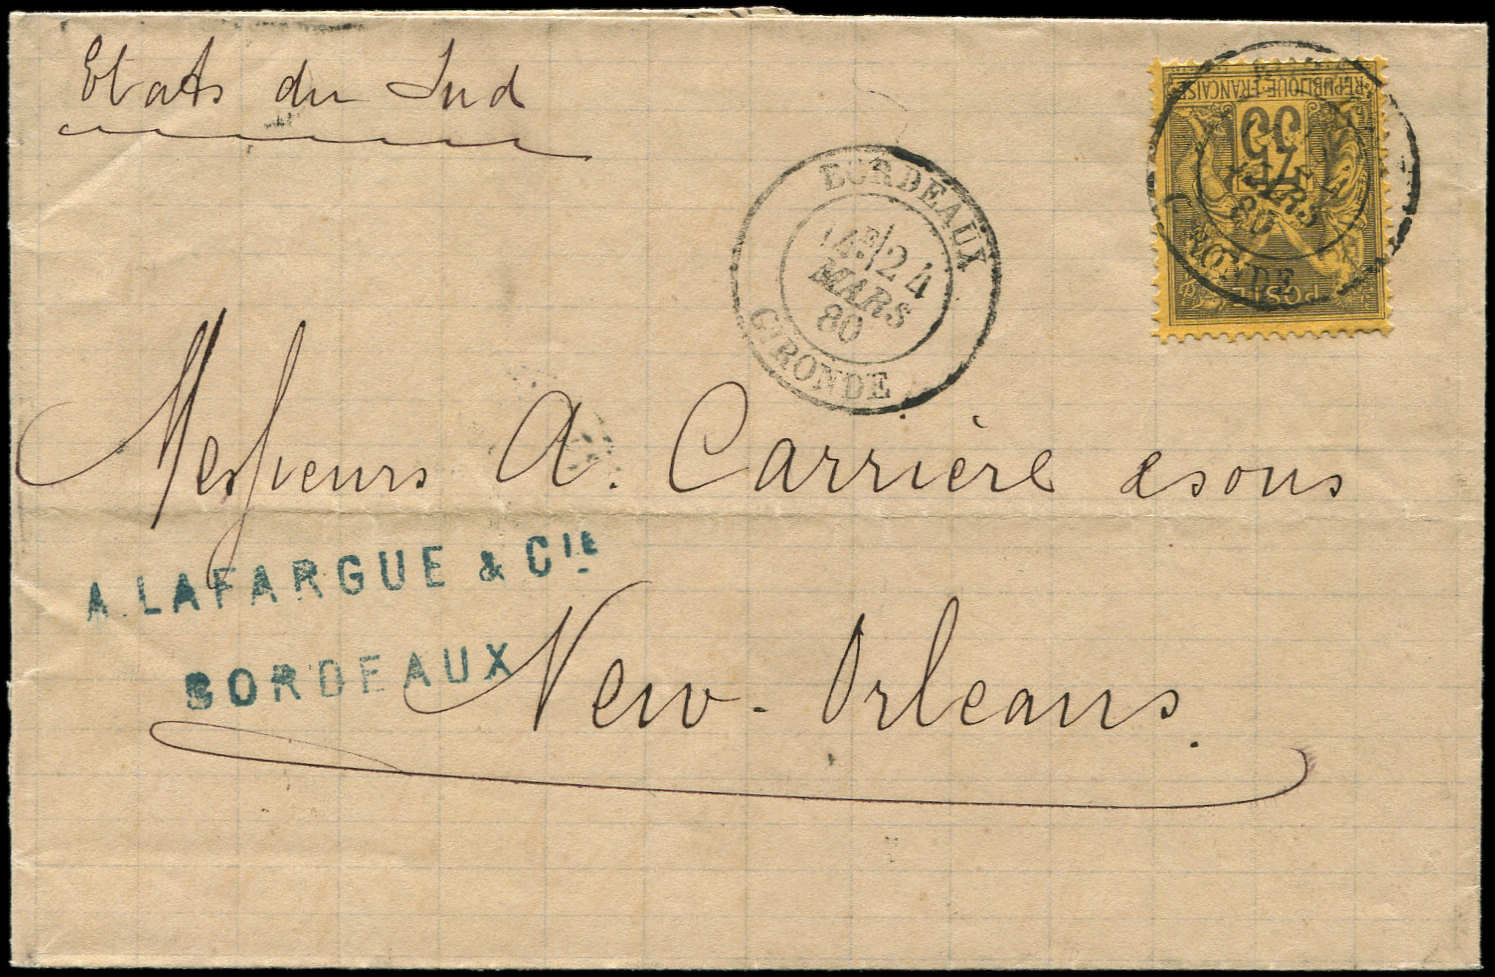 Etats du Sud
RÉPUBLIQUE FRANÇAISE
35
POSTES
MARS
80
GIRONDE
BORDEAUX
24
MARS
80
GIRONDE
Messieurs A. Carrière & sons
A. LAFARGUE & CIE
BORDEAUX
New-Orleans.